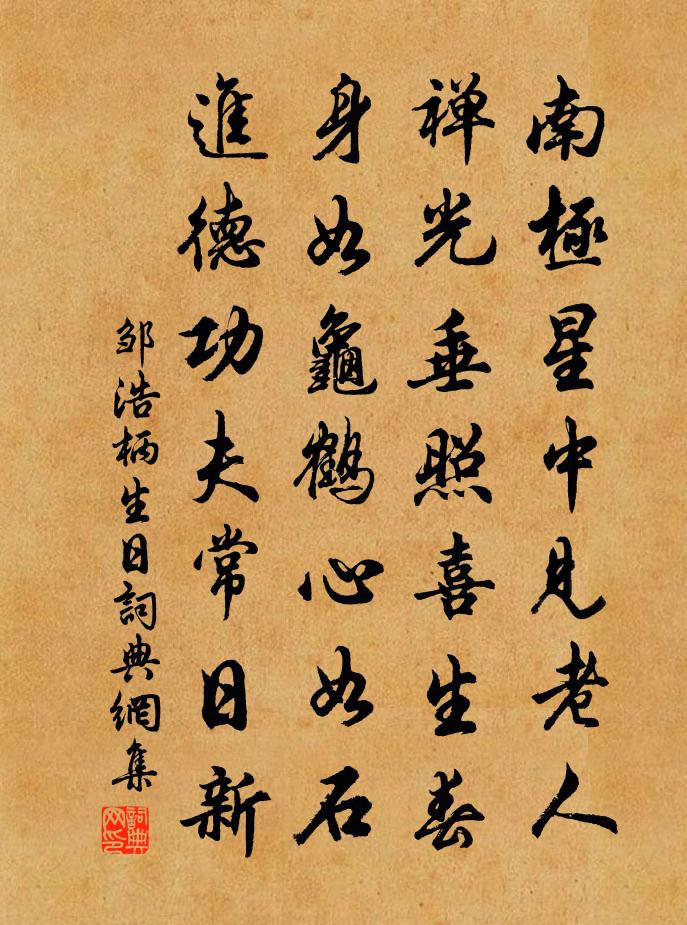 南極星中見老人
禅光垂照喜生春
身如龜鶴心如石
進德功夫常日新
邹浩柄生日詞典網集
詞典网印